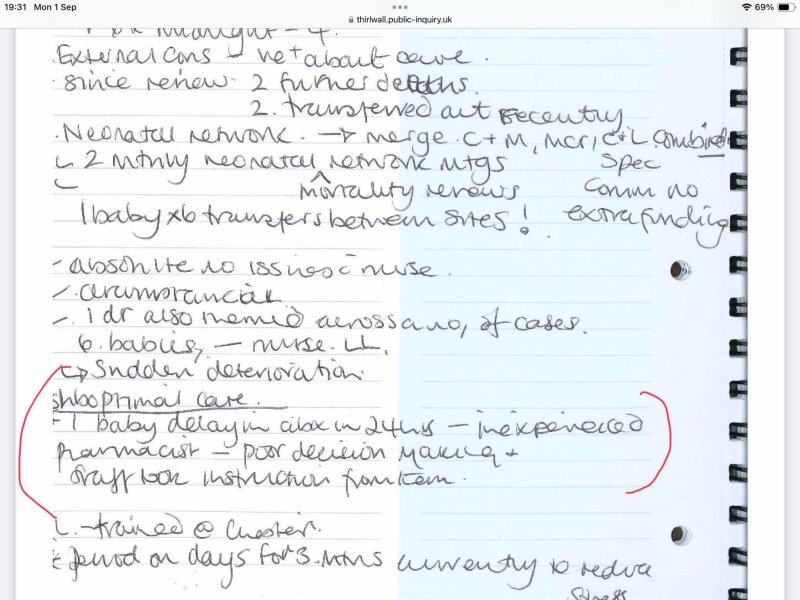 19:31 Mon 1 Sep
69%
thirlwall.public-inquiry.uk
midnight - 4.
External cons - ve+ about care.
since review 2 further deaths.
2. transferred out recently
Neonatal network. → merge C+M, Mcr, C+L. Combined
2 mthly neonatal network mtgs Spec
mortality reviews Comm no
1 baby x6 transfers between sites! extra funding
absolute no issues c̄ nurse.
circumstancial
1 dr also named across a no, of cases.
6. babies, - nurse LL,
↳ Sudden deterioration
suboptimal care.
1 baby delay in abx in 24hrs - inexperienced
pharmacist - poor decision making +
staff took instruction from them.
L. - trained @ Chester.
period on days for 3 mths currently to reduce
stress